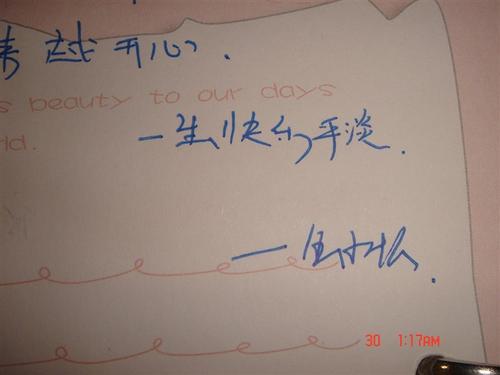 越开心.
s beauty to our days
ld.
一生快乐平淡.
30 1:17AM